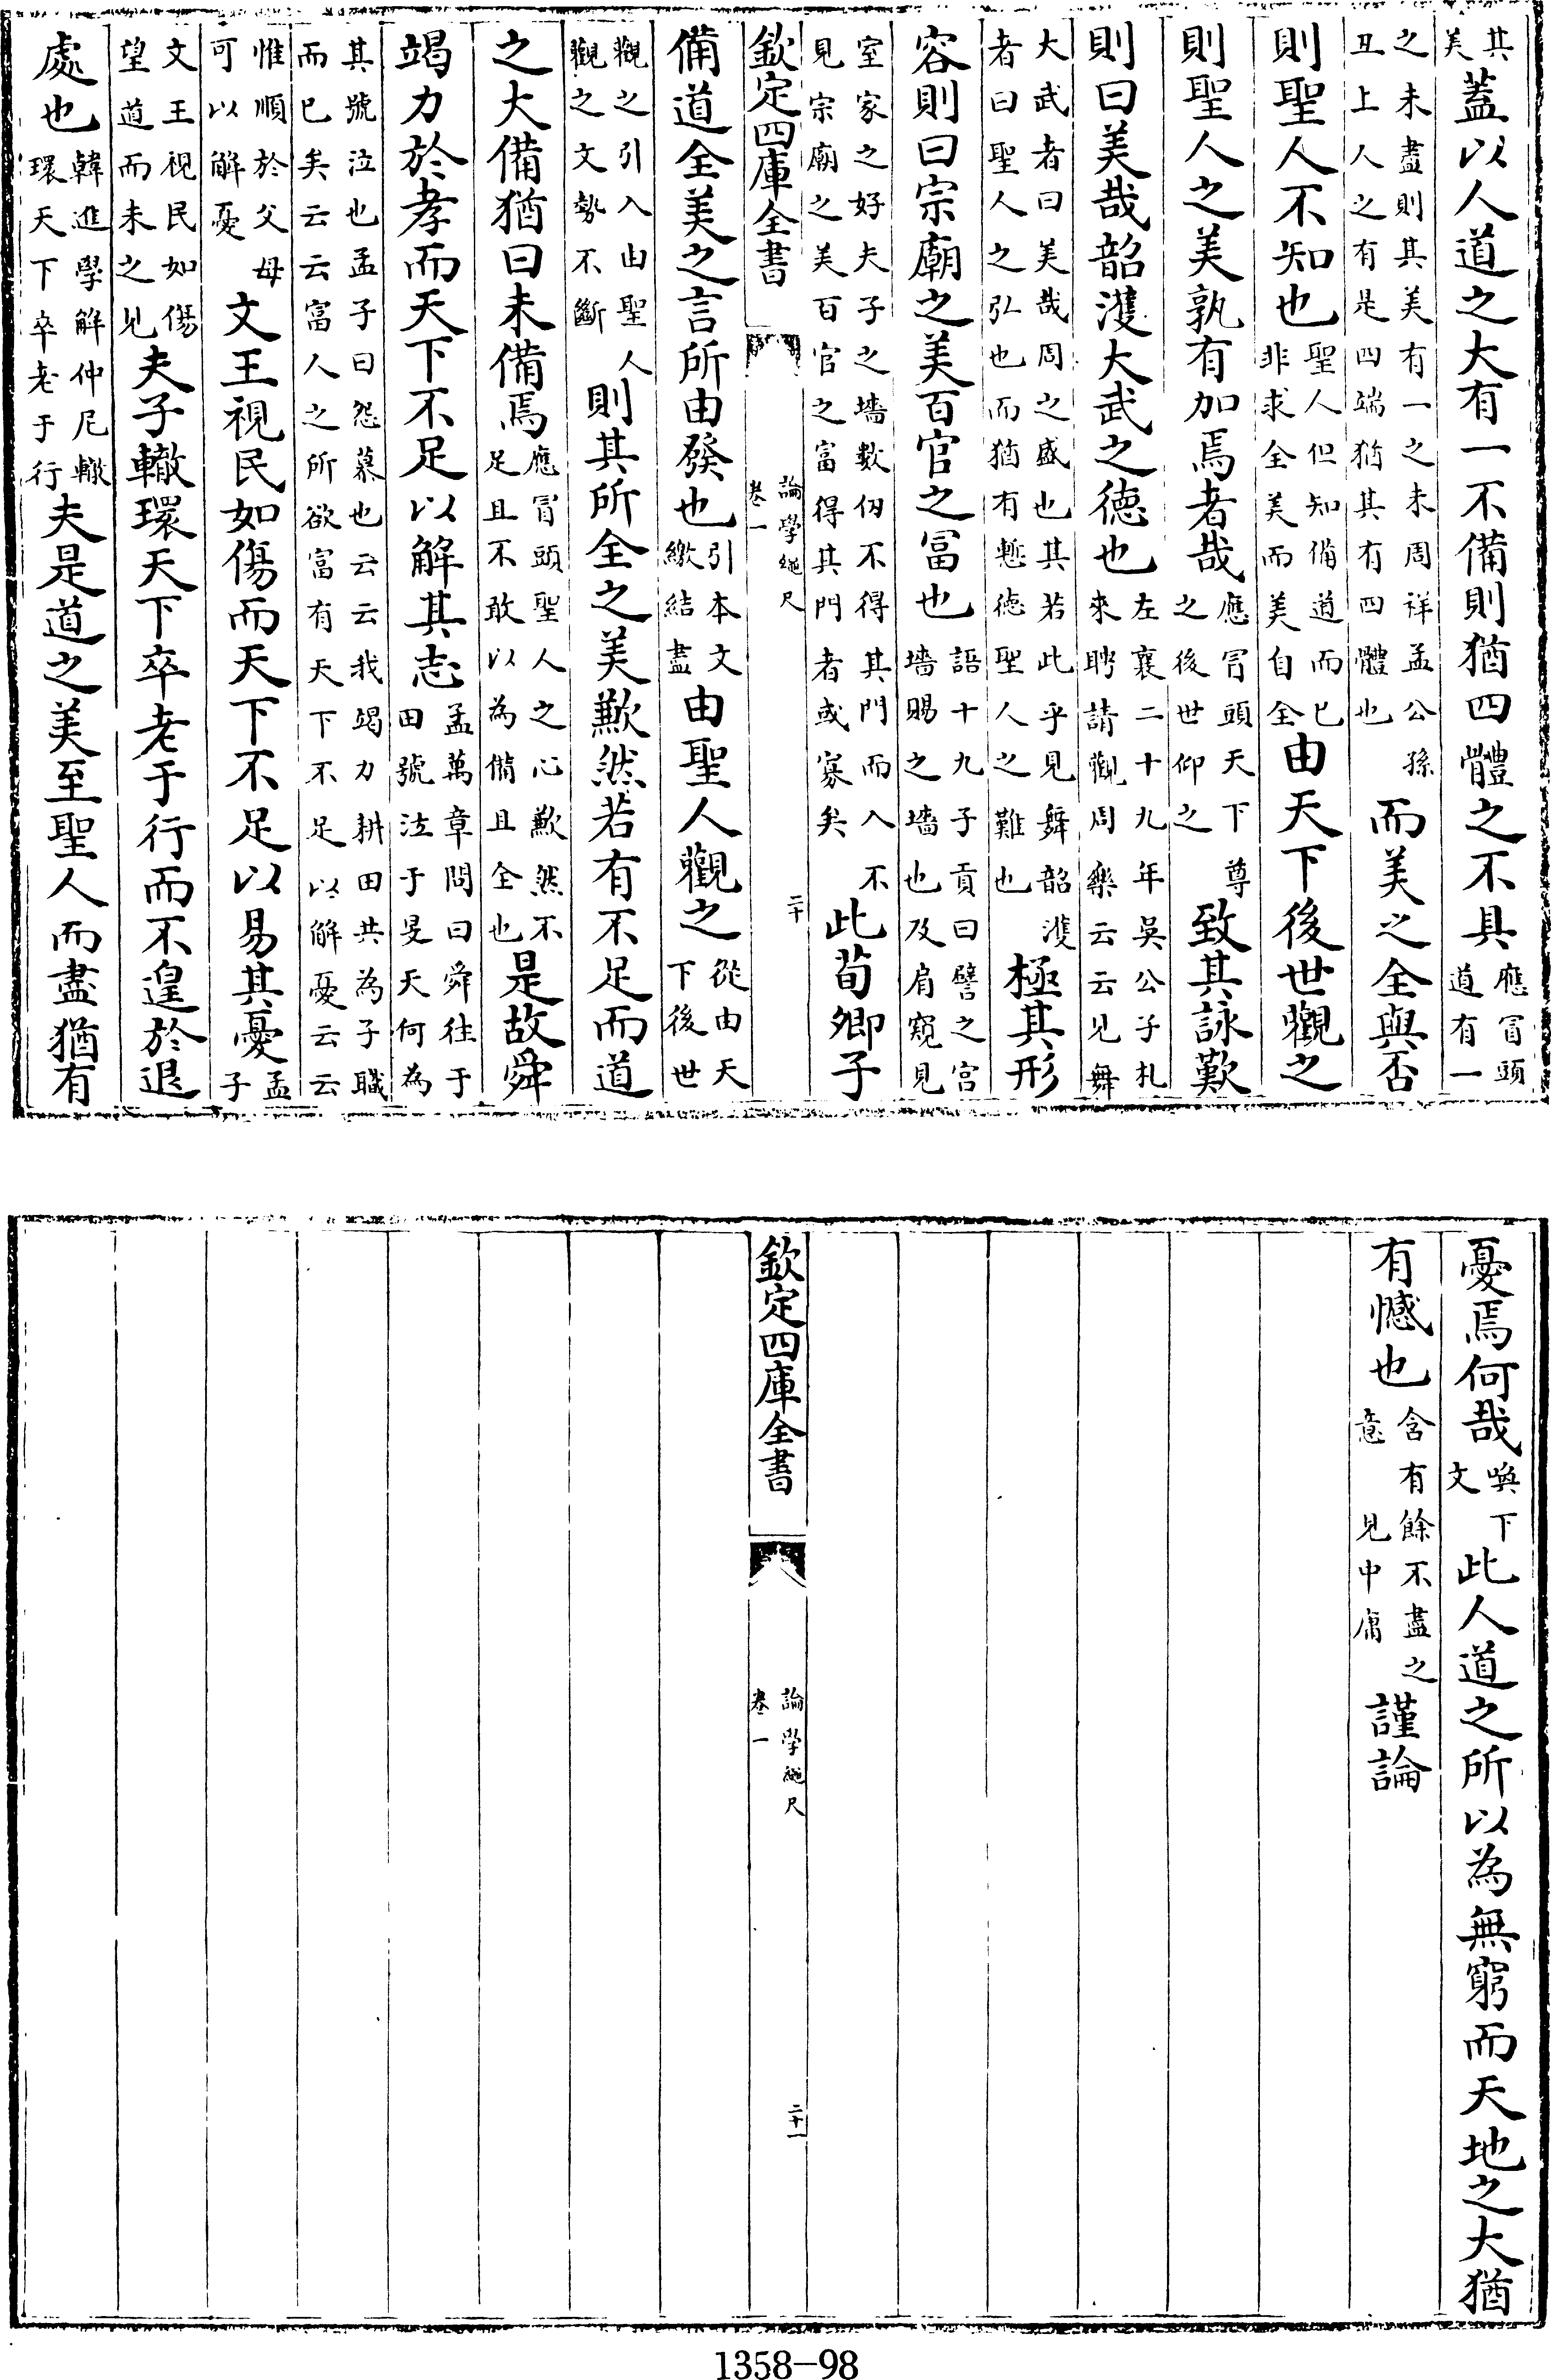 其美蓋以人道之大有一不備則猶四體之不具應冒頭道有一
之未盡則其美有一之未周祥孟公孫丑上人之有是四端猶其有四體也而美之全與否
則聖人不知也聖人但知備道而已非求全美而美自全由天下後世觀之
則聖人之美孰有加焉者哉應冒頭天下之後世仰之尊致其詠歎
則曰美哉韶濩大武之德也左襄二十九年吳公子札來聘請觀周樂云云見舞
大武者曰美哉周之盛也其若此乎見舞韶濩者曰聖人之弘也而猶有慙德聖人之難也極其形
容則曰宗廟之美百官之富也語十九子貢曰譬之宮墻賜之墻也及肩窺見
室家之好夫子之墻數仞不得其門而入不見宗廟之美百官之富得其門者或寡矣此荀卿子
欽定四庫全書
論學繩尺
卷一
二十
備道全美之言所由發也引本文繳結盡由聖人觀之從由天下後世
觀之引入由聖人觀之文勢不斷則其所全之美歉然若有不足而道
之大備猶曰未備焉應冒頭聖人之心歉然不足且不敢以為備且全也是故舜
竭力於孝而天下不足以解其志孟萬章問曰舜往于田號泣于旻天何為
其號泣也孟子曰怨慕也云云我竭力耕田共為子職而已矣云云富人之所欲富有天下不足以解憂云云
惟順於父母可以解憂文王視民如傷而天下不足以易其憂孟子
文王視民如傷望道而未之見夫子轍環天下卒老于行而不遑於退
處也韓進學解仲尼轍環天下卒老于行夫是道之美至聖人而盡猶有
憂焉何哉喚下文此人道之所以為無窮而天地之大猶
有憾也含有餘不盡之意見中庸謹論
欽定四庫全書
論學繩尺
卷一
二十一
1358-98